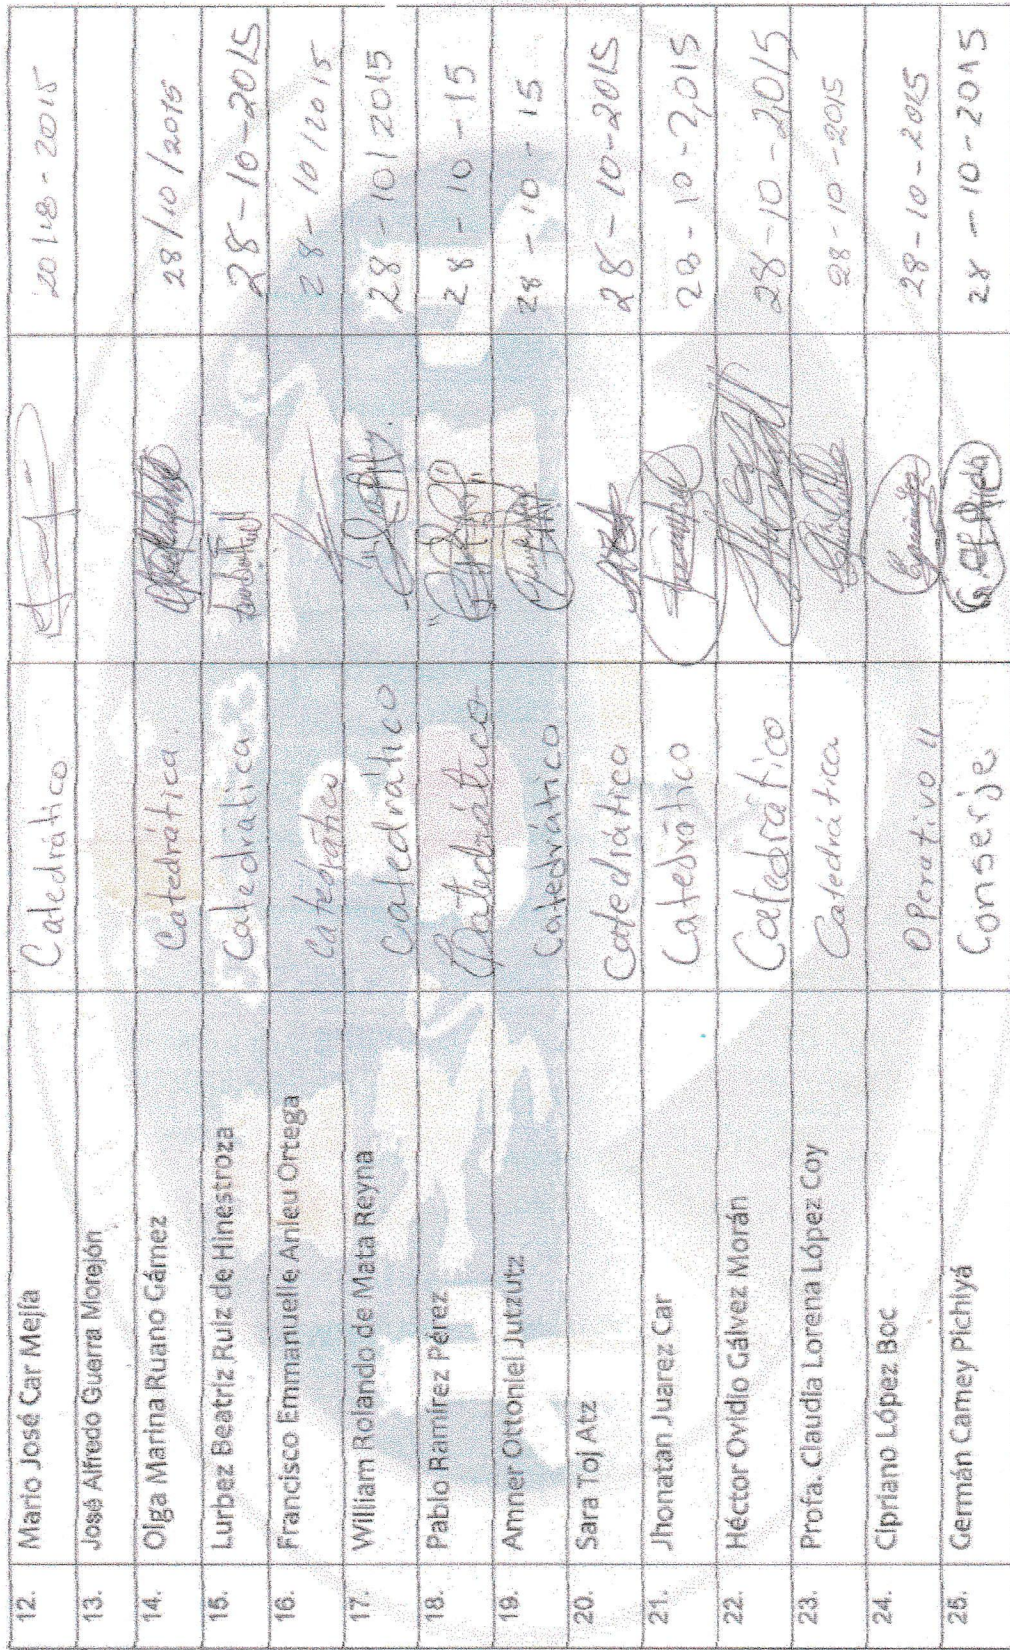 12. Mario José Car Mejía Catedrático 20/10-2015
13. José Alfredo Guerra Morejón
14. Olga Marina Ruano Gámez Catedrática. 28/10/2015
15. Lurbez Beatriz Ruiz de Hinestroza Catedrática 28-10-2015
16. Francisco Emmanuelle Anleu Ortega Catedrático 28-10/2015
17. William Rolando de Mata Reyna Catedrático 28-10/2015
18. Pablo Ramírez Pérez Catedrático 28-10-15
19. Amner Ottoniel Jutzutz Catedrático 28-10-15
20. Sara Toj Atz Catedrático 28-10-2015
21. Jhonatan Juarez Car Catedrático 28-10-2015
22. Héctor Ovidio Gálvez Morán Catedrático 28-10-2015
23. Profa. Claudia Lorena López Coy Catedrática 28-10-2015
24. Cipriano López Boc Operativo 28-10-2015
25. Germán Camey Pichiyá Conserje 28-10-2015